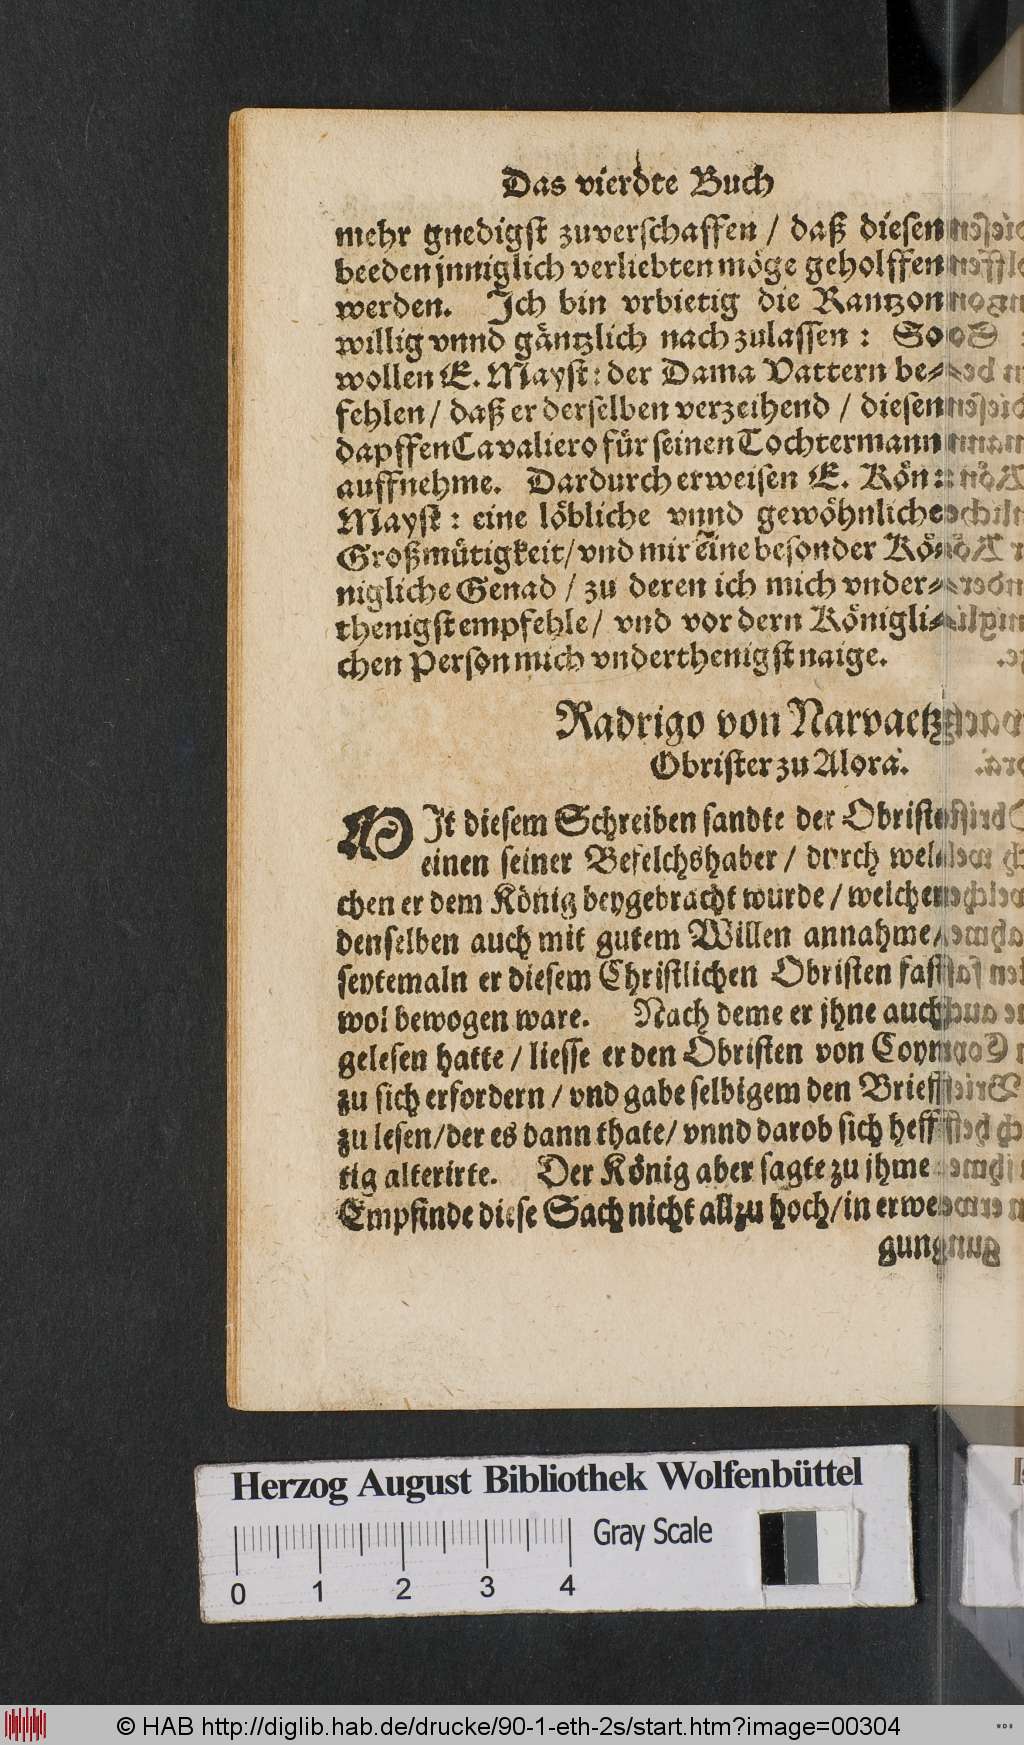 Das vierdte Buch
mehr gnedigst zuverschaffen / daß diesen
beeden jnniglich verliebten möge geholffen
werden. Ich bin vrbietig die Rantzon
willig vnnd gäntzlich nach zulassen : So
wollen E. Mayst: der Dama Vattern be-
fehlen / daß er derselben verzeihend / diesen
dapffen Cavaliero für seinen Tochtermann
auffnehme. Dardurch erweisen E. Kön:
Mayst : eine löbliche vnnd gewöhnliche
Großmütigkeit / vnd mir eine besonder Kö-
nigliche Genad / zu deren ich mich vnder-
thenigst empfehle / vnd vor dern Königli-
chen Person mich vnderthenigst naige.
Radrigo von Narvaetz
Obrister zu Alora.
MIt diesem Schreiben sandte der Obriste
einen seiner Befelchshaber / durch wel-
chen er dem König beygebracht wurde / welcher
denselben auch mit gutem Willen annahme /
seytemaln er diesem Christlichen Obristen fast
wol bewogen ware. Nach deme er jhne auch
gelesen hatte / liesse er den Obristen von Coyn
zu sich erfordern / vnd gabe selbigem den Brieff
zu lesen / der es dann thate / vnnd darob sich heff-
tig alterirte. Der König aber sagte zu jhme
Empfinde diese Sach nicht allzu hoch / in erwe-
gung
Herzog August Bibliothek Wolfenbüttel
Gray Scale
0 1 2 3 4
© HAB http://diglib.hab.de/drucke/90-1-eth-2s/start.htm?image=00304